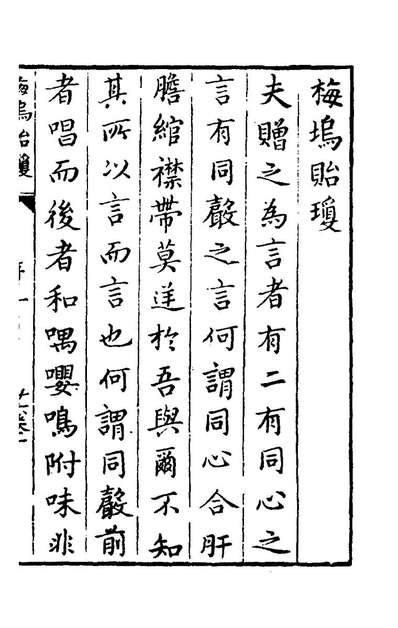 梅塢貽瓊
夫贈之為言者有二有同心之
言有同聲之言何謂同心合肝
膽綰襟帶莫逆於吾與爾不知
其所以言而言也何謂同聲前
者唱而後者和喁嚶鳴附味非
梅塢貽瓊